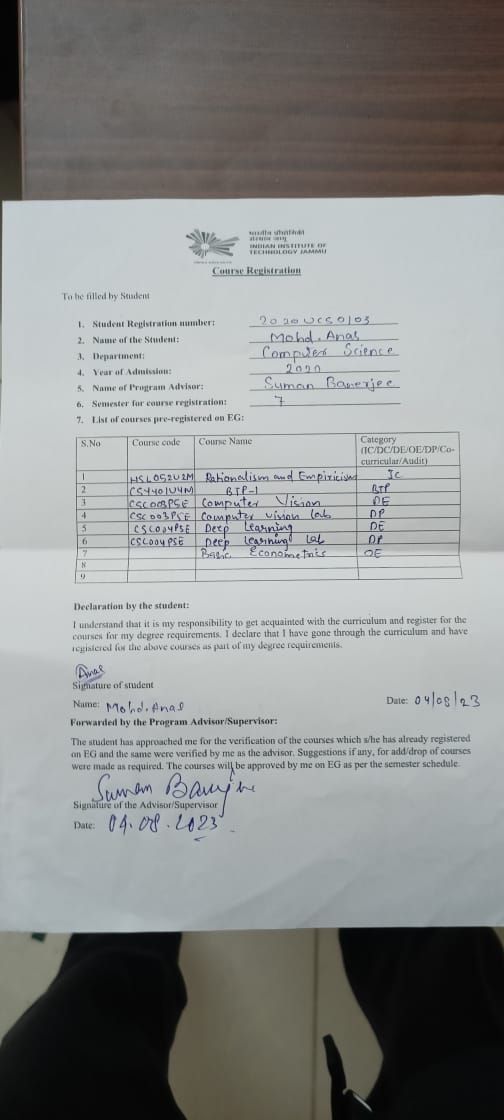 भारतीय प्रौद्योगिकी
संस्थान जम्मू
INDIAN INSTITUTE OF
TECHNOLOGY JAMMU
Course Registration
To be filled by Student
1. Student Registration number: 2020UCS0103
2. Name of the Student: Mohd. Anas
3. Department: Computer Science
4. Year of Admission: 2020
5. Name of Program Advisor: Suman Banerjee
6. Semester for course registration: 7
7. List of courses pre-registered on EG:
S.No Course code Course Name Category
(IC/DC/DE/OE/DP/Co-
curricular/Audit)
1 HSL052U2M Rationalism and Empiricism IC
2 CS4401U4M BTP-1 BTP
3 CSC003P5E Computer Vision DE
4 CSC003P5E Computer vision lab DP
5 CSC004P5E Deep Learning DE
6 CSC004P5E Deep Learning Lab DP
7 Basic Econometrics OE
8
9
Declaration by the student:
I understand that it is my responsibility to get acquainted with the curriculum and register for the
courses for my degree requirements. I declare that I have gone through the curriculum and have
registered for the above courses as part of my degree requirements.
Anas
Signature of student
Name: Mohd. Anas Date: 04/08/23
Forwarded by the Program Advisor/Supervisor:
The student has approached me for the verification of the courses which s/he has already registered
on EG and the same were verified by me as the advisor. Suggestions if any, for add/drop of courses
were made as required. The courses will be approved by me on EG as per the semester schedule.
Suman Banerjee
Signature of the Advisor/Supervisor
Date: 04.08.2023